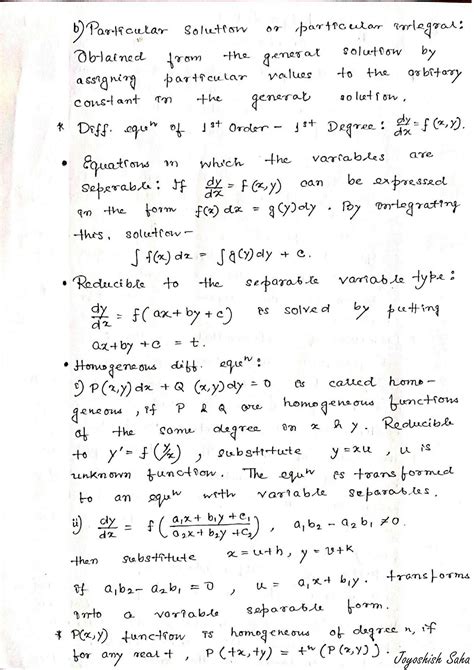 b) Particular solution or particular integral:
Obtained from the general solution by
assigning particular values to the orbitory
constant in the general solution.
* Diff. equⁿ of 1st Order – 1st Degree: dy/dx = f(x,y).
• Equations in which the variables are
seperable: If dy/dx = F(x,y) can be expressed
in the form f(x)dx = g(y)dy. By integrating
this, solution –
∫f(x)dx = ∫g(y)dy + c.
• Reducible to the separable variable type:
dy/dx = f(ax+by+c) is solved by putting
ax+by+c = t.
• Homogeneous diff. equⁿ:
i) P(x,y)dx + Q(x,y)dy = 0 is called homo-
geneous, if P & Q are homogeneous functions
of the same degree in x & y. Reducible
to y' = f(y/x), substitute y = xu, u is
unknown function. The equⁿ is transformed
to an equⁿ with variable separables.
ii) dy/dx = f((a₁x+b₁y+c₁)/(a₂x+b₂y+c₂)), a₁b₂ – a₂b₁ ≠ 0.
then substitute x = u+h, y = v+k
if a₁b₂ – a₂b₁ = 0, u = a₁x + b₁y. transforms
into a variable separable form.
* P(x,y) function is homogeneous of degree n, if
for any real t, P(tx, ty) = tⁿ(P(x,y)).
Joyoshish Saha